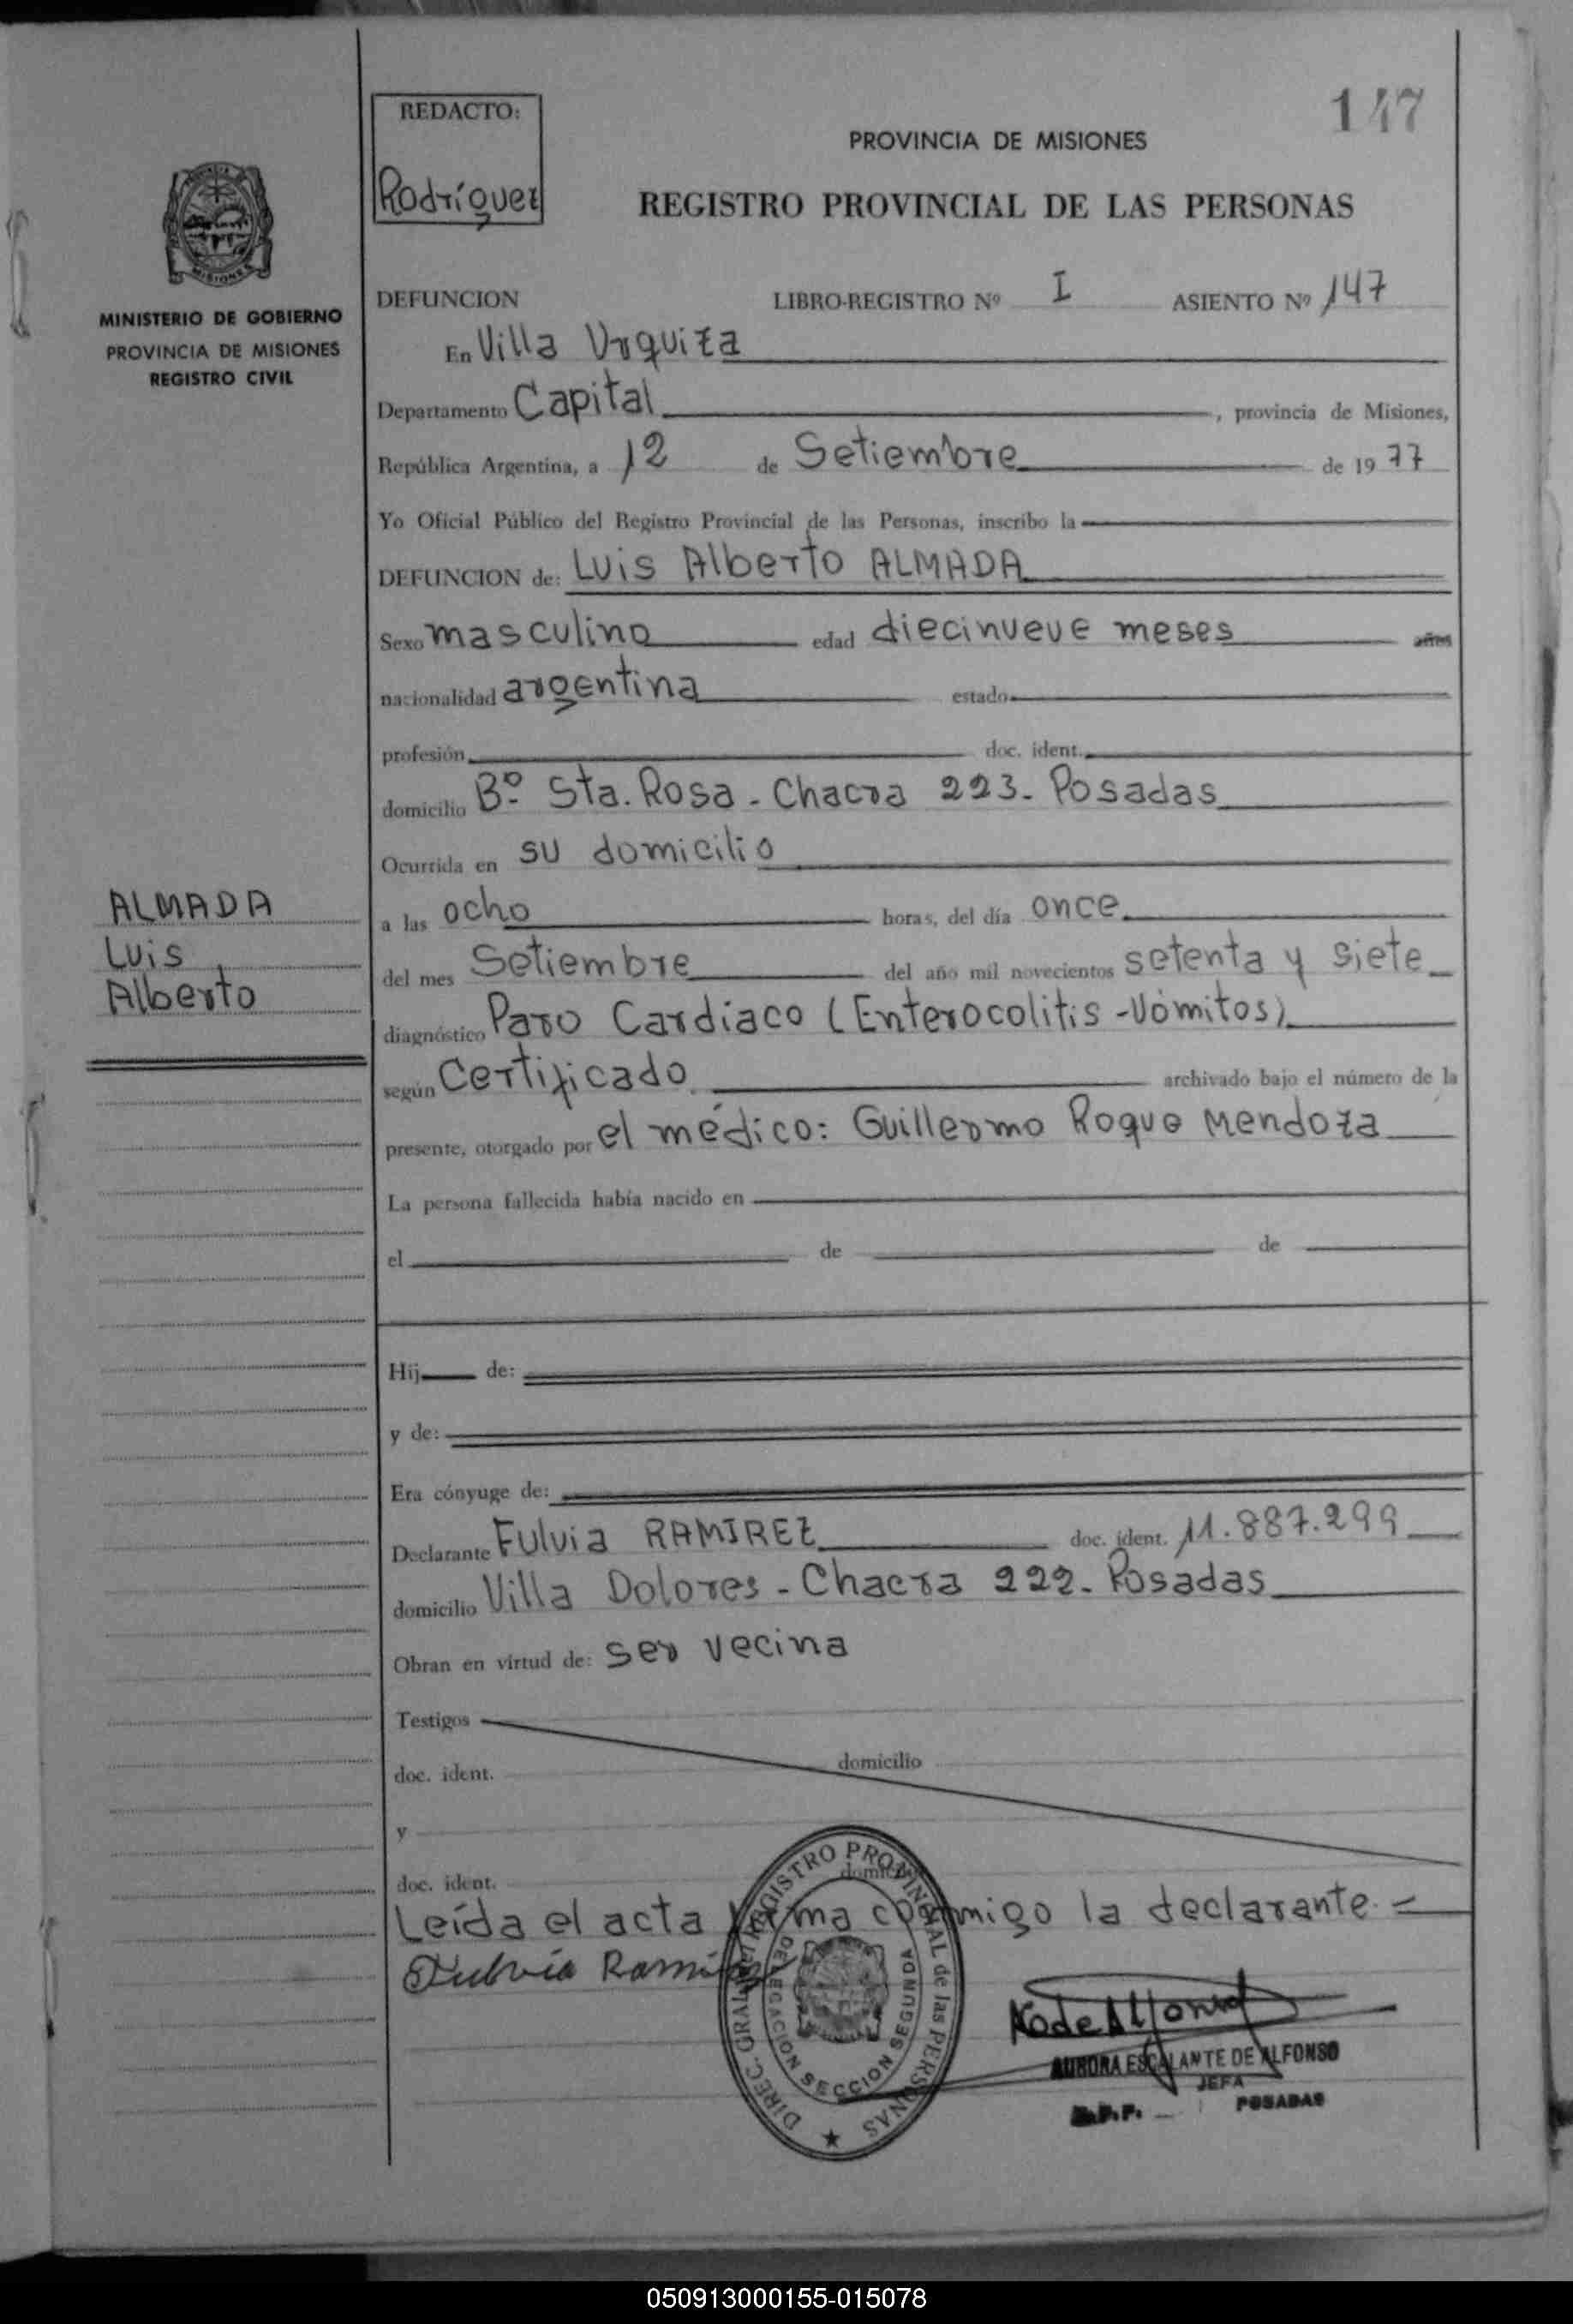 147
REDACTO:
Rodríguez
PROVINCIA DE MISIONES
REGISTRO PROVINCIAL DE LAS PERSONAS
MISIONES
MINISTERIO DE GOBIERNO
PROVINCIA DE MISIONES
REGISTRO CIVIL
DEFUNCION LIBRO-REGISTRO Nº I ASIENTO Nº 147
En Villa Urquiza
Departamento Capital, provincia de Misiones,
República Argentina, a 12 de Setiembre de 1977
Yo Oficial Público del Registro Provincial de las Personas, inscribo la
DEFUNCION de: Luis Alberto ALMADA
Sexo masculino edad diecinueve meses años
nacionalidad argentina estado
profesión doc. ident.
domicilio Bº Sta. Rosa - Chacra 223 - Posadas
Ocurrida en su domicilio
ALMADA
Luis
Alberto
a las ocho horas, del día once
del mes Setiembre del año mil novecientos setenta y siete
diagnóstico Paro Cardiaco (Enterocolitis - Vómitos)
según Certificado archivado bajo el número de la
presente, otorgado por el médico: Guillermo Roque Mendoza
La persona fallecida había nacido en
el de de
Hij de:
y de:
Era cónyuge de:
Declarante Fulvia RAMIREZ doc. ident. 11.887.299
domicilio Villa Dolores - Chacra 222 - Posadas
Obran en virtud de: ser vecina
Testigos
doc. ident. domicilio
y
doc. ident.
Leída el acta firma conmigo la declarante. =
Fulvia Ramirez
DIREC. GRAL. del REGISTRO PROVINCIAL de las PERSONAS
DELEGACION SECCION SEGUNDA
AURORA ESCALANTE DE ALFONSO
JEFA
POSADAS
050913000155-015078